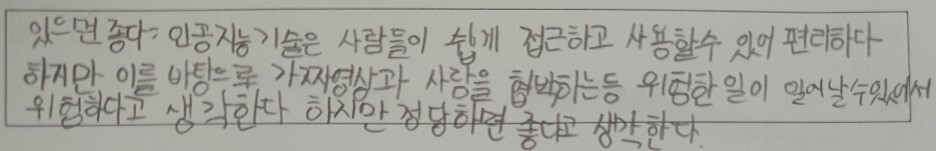 있으면 좋다: 인공지능기술은 사람들이 쉽게 접근하고 사용할수 있어 편리하다
하지만 이를 바탕으로 가짜영상과 사람을 협박하는등 위험한 일이 일어날수있어서
위험하다고 생각한다 하지만 정당하면 좋다고 생각한다.